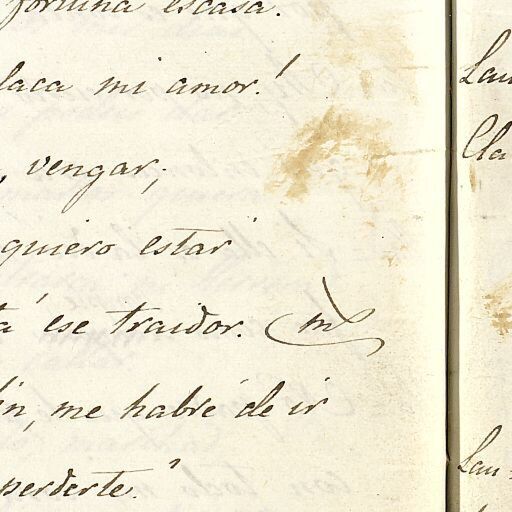 fortuna escasa.
laca mi amor!
, vengar;
quiero estar
tá ese traidor.
in, me habré de ir
perderte."
Lau
Cla
Lau